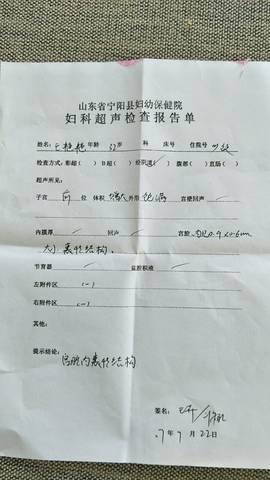 山东省宁阳县妇幼保健院
妇科超声检查报告单
姓名: 艳艳 年龄 32岁 科 床号 住院号
检查方式: 彩超( ) B超( ) 经阴道( ) 腹部( ) 直肠( )
超声所见:
子宫 前 位 体积 增大 外形 饱满 宫壁回声
内膜厚 回声 宫腔 内见0.9x0.6cm
大小囊性结构.
节育器 盆腔积液
左附件区 (-)
右附件区 (-)
其他:
提示结论: 宫腔内囊性结构
签名:
7年9月22日